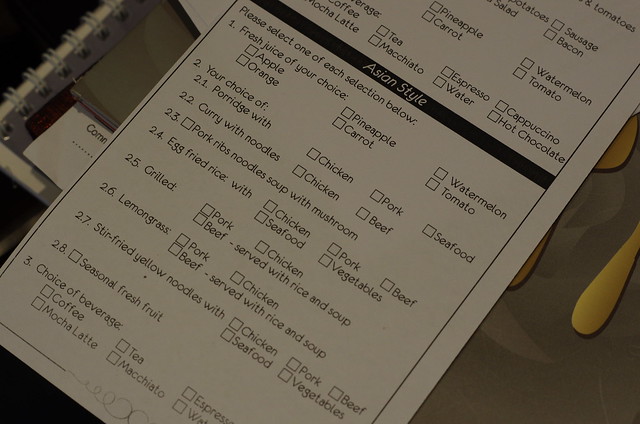 beverage:
Coffee
Mocha Latte
Tea
Macchiato
Espresso
Water
Cappuccino
Hot Chocolate
Pineapple
Carrot
Salad
potatoes
& tomatoes
Sausage
Bacon
Watermelon
Tomato
Asian Style
Please select one of each selection below:
1. Fresh juice of your choice:
Apple Pineapple Watermelon
Orange Carrot Tomato
2. Your choice of:
2.1. Porridge with Chicken Pork Seafood
2.2. Curry with noodles Chicken Beef
2.3. Pork ribs noodles soup with mushroom
2.4. Egg fried rice: with Chicken Pork Beef
Seafood Vegetables
2.5. Grilled: Pork Chicken
Beef - served with rice and soup
2.6. Lemongrass: Pork Chicken
Beef - served with rice and soup
2.7. Stir-fried yellow noodles with Chicken Pork Beef
Seafood Vegetables
2.8. Seasonal fresh fruit
3. Choice of beverage:
Coffee Tea Espresso
Mocha Latte Macchiato